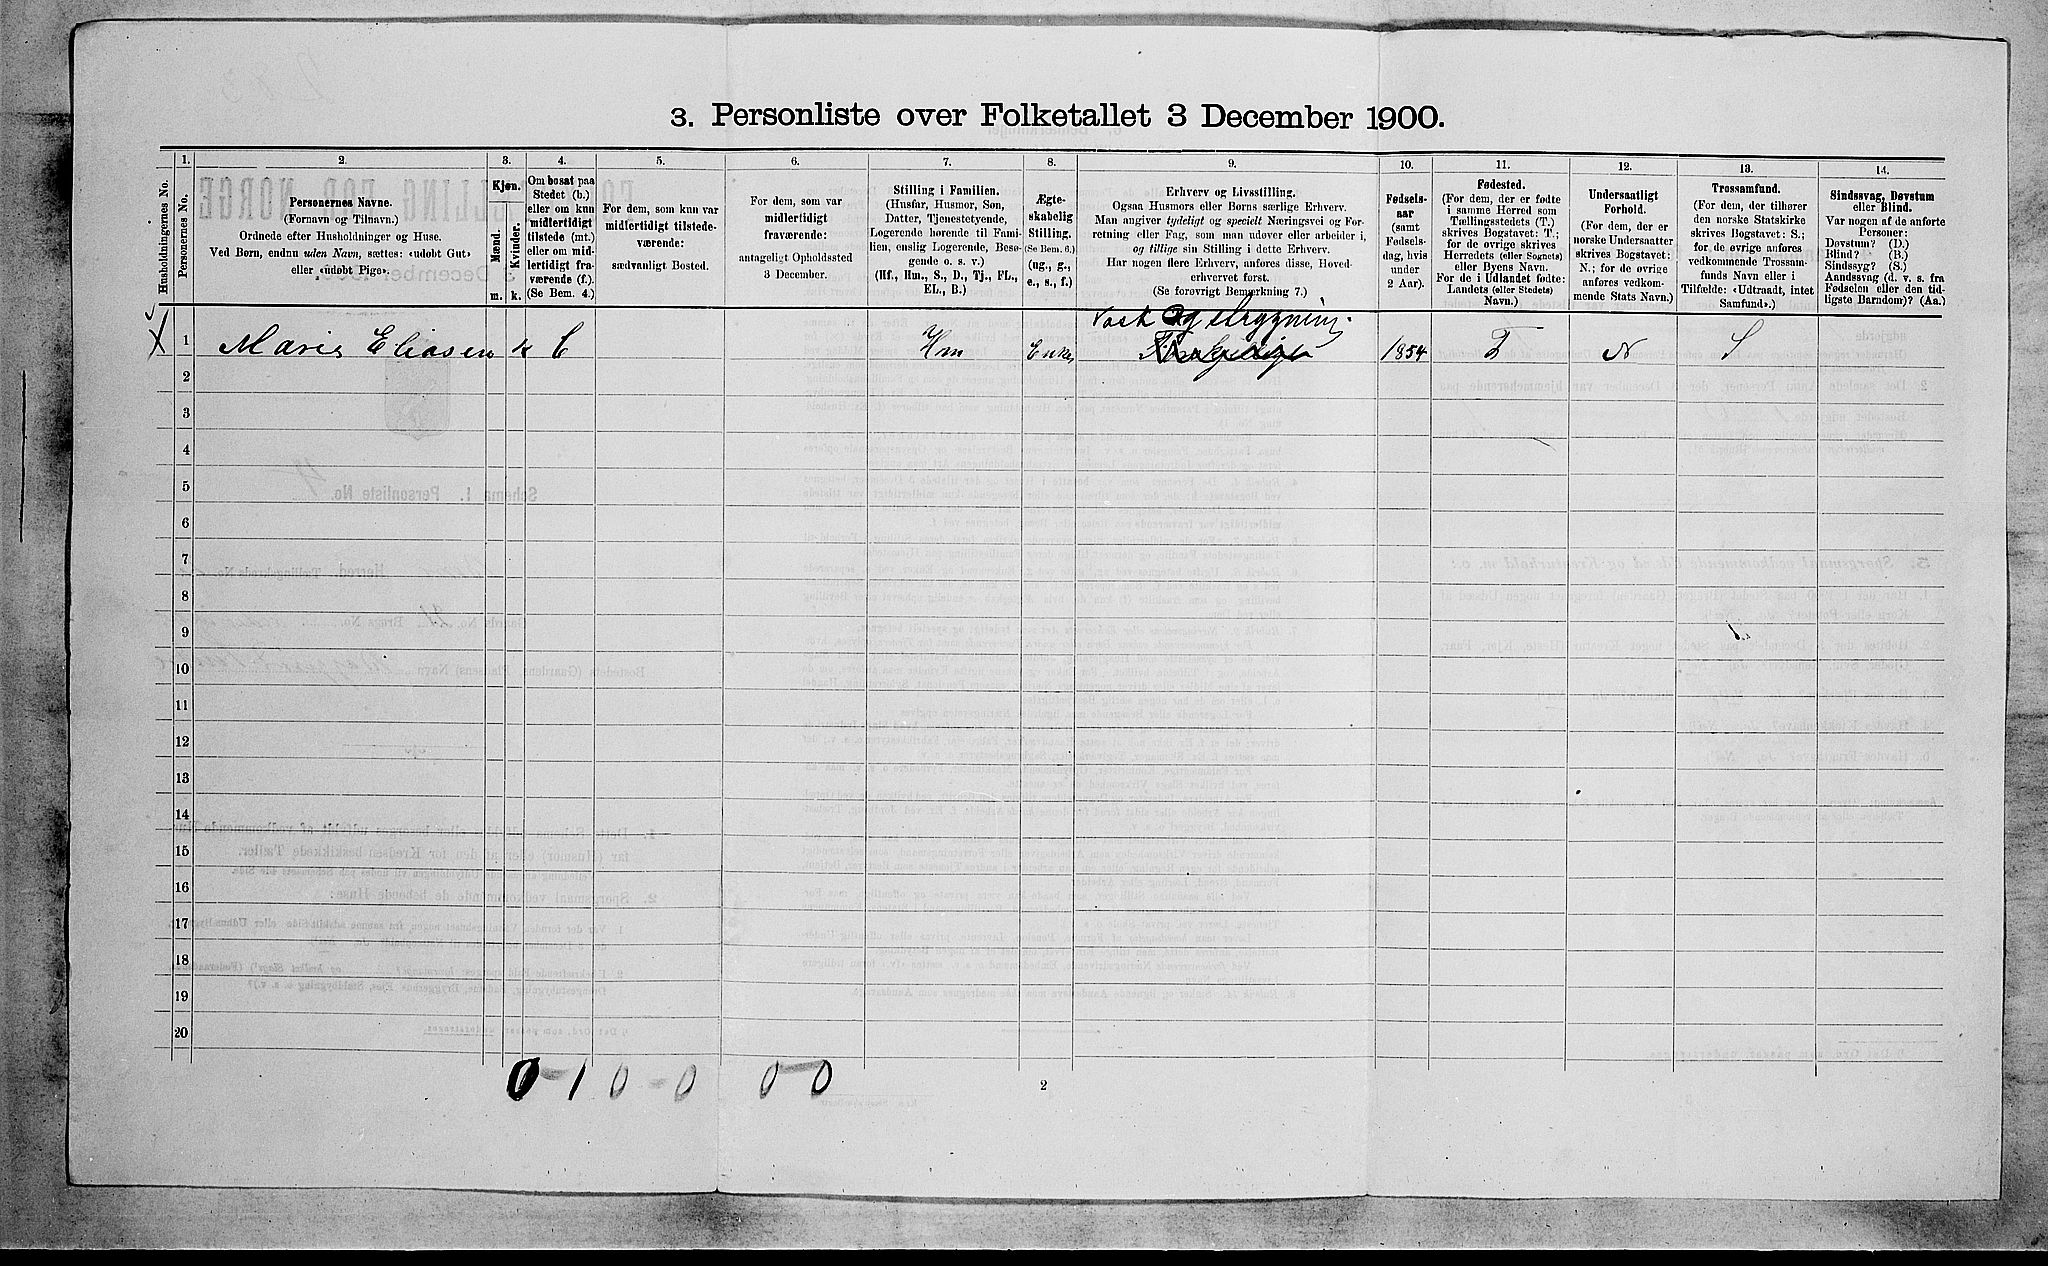 3. Personliste over Folketallet 3 December 1900.
Husholdningernes No.
1.
Personernes No.
2.
Personernes Navne.
(Fornavn og Tilnavn.)
Ordnede efter Husholdninger og Huse.
Ved Børn, endnu uden Navn, sættes: «udøbt Gut»
eller «udøbt Pige».
3.
Kjøn.
Mænd.
Kvinder.
m.
k.
4.
Om bosat paa
Stedet (b.)
eller om kun
midlertidigt
tilstede (mt.)
eller om mid-
lertidigt fra-
værende (f.).
(Se Bem. 4.)
5.
For dem, som kun var
midlertidigt tilstede-
værende:
sædvanligt Bosted.
6.
For dem, som var
midlertidigt
fraværende:
antageligt Opholdssted
3 December.
7.
Stilling i Familien.
(Husfar, Husmor, Søn,
Datter, Tjenestetyende,
Logerende hørende til Fami-
lien, enslig Logerende, Besø-
gende o. s. v.)
(Hf., Hm., S., D., Tj., FL.,
EL., B.)
8.
Ægte-
skabelig
Stilling.
(Se Bem. 6.)
(ug., g.,
e., s., f.)
9.
Erhverv og Livsstilling.
Ogsaa Husmors eller Børns særlige Erhverv.
Man angiver tydeligt og specielt Næringsvei og For-
retning eller Fag, som man udøver eller arbeider i,
og tillige sin Stilling i dette Erhverv.
Har nogen flere Erhverv, anføres disse, Hoved-
erhvervet først.
(Se forøvrigt Bemerkning 7.)
10.
Fødsels-
aar
(samt
Fødsels-
dag, hvis
under
2 Aar).
11.
Fødested.
(For dem, der er fødte
i samme Herred som
Tællingsstedets (T.)
skrives Bogstavet: T.;
for de øvrige skrives
Herredets (eller Sognets)
eller Byens Navn.
For de i Udlandet fødte:
Landets (eller Stedets)
Navn.)
12.
Undersaatligt
Forhold.
(For dem, der er
norske Undersaatter
skrives Bogstavet:
N.; for de øvrige
anføres vedkom-
mende Stats Navn.)
13.
Trossamfund.
(For dem, der tilhører
den norske Statskirke
skrives Bogstavet: S.;
for de øvrige anføres
vedkommende Trossam-
funds Navn eller i
Tilfælde: «Udtraadt, intet
Samfund».)
14.
Sindssvag, Døvstum
eller Blind.
Var nogen af de anførte
Personer:
Døvstum? (D.)
Blind? (B.)
Sindssyg? (S.)
Aandssvag (d. v. s. fra
Fødselen eller den tid-
ligste Barndom)? (Aa.)
X 1 Marie Eliasen k b Hm Enke 1854 T N S
Vask og
2
3
4
5
6
7
8
9
10
11
12
13
14
15
16
17
18
19
20
0-1 0-0 0-0
2